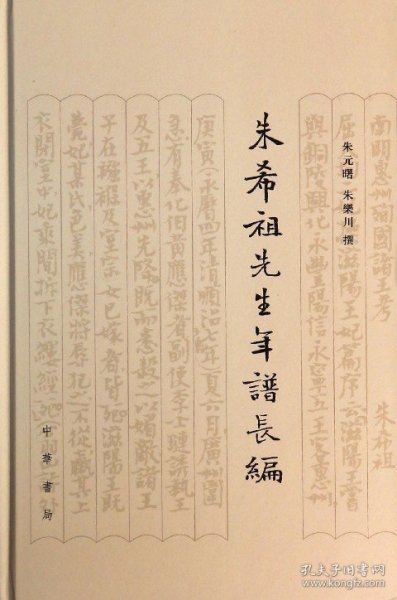 南明惠州殉國諸王考 朱希祖
屈 滋陽王妃 序云滋陽王
興銅陵興化永豐 陽信永寧五王 惠州
朱元曙 朱樂川 撰
朱希祖先生年譜長編
庚寅(永曆四年清順治七年)夏六月廣州圍
急有奉化伯黃應傑者副使 士璉誘執王
及五王以惠州先降既而悉殺 以媚敵諸王
子在襁褓及宮 女已嫁者皆死滋陽王既
薨妃某氏有美應傑將辱犯之不從 其上
衣閉室中妃乘間拆下衣縷經死
中華書局
孔夫子旧书网
kongfz.com